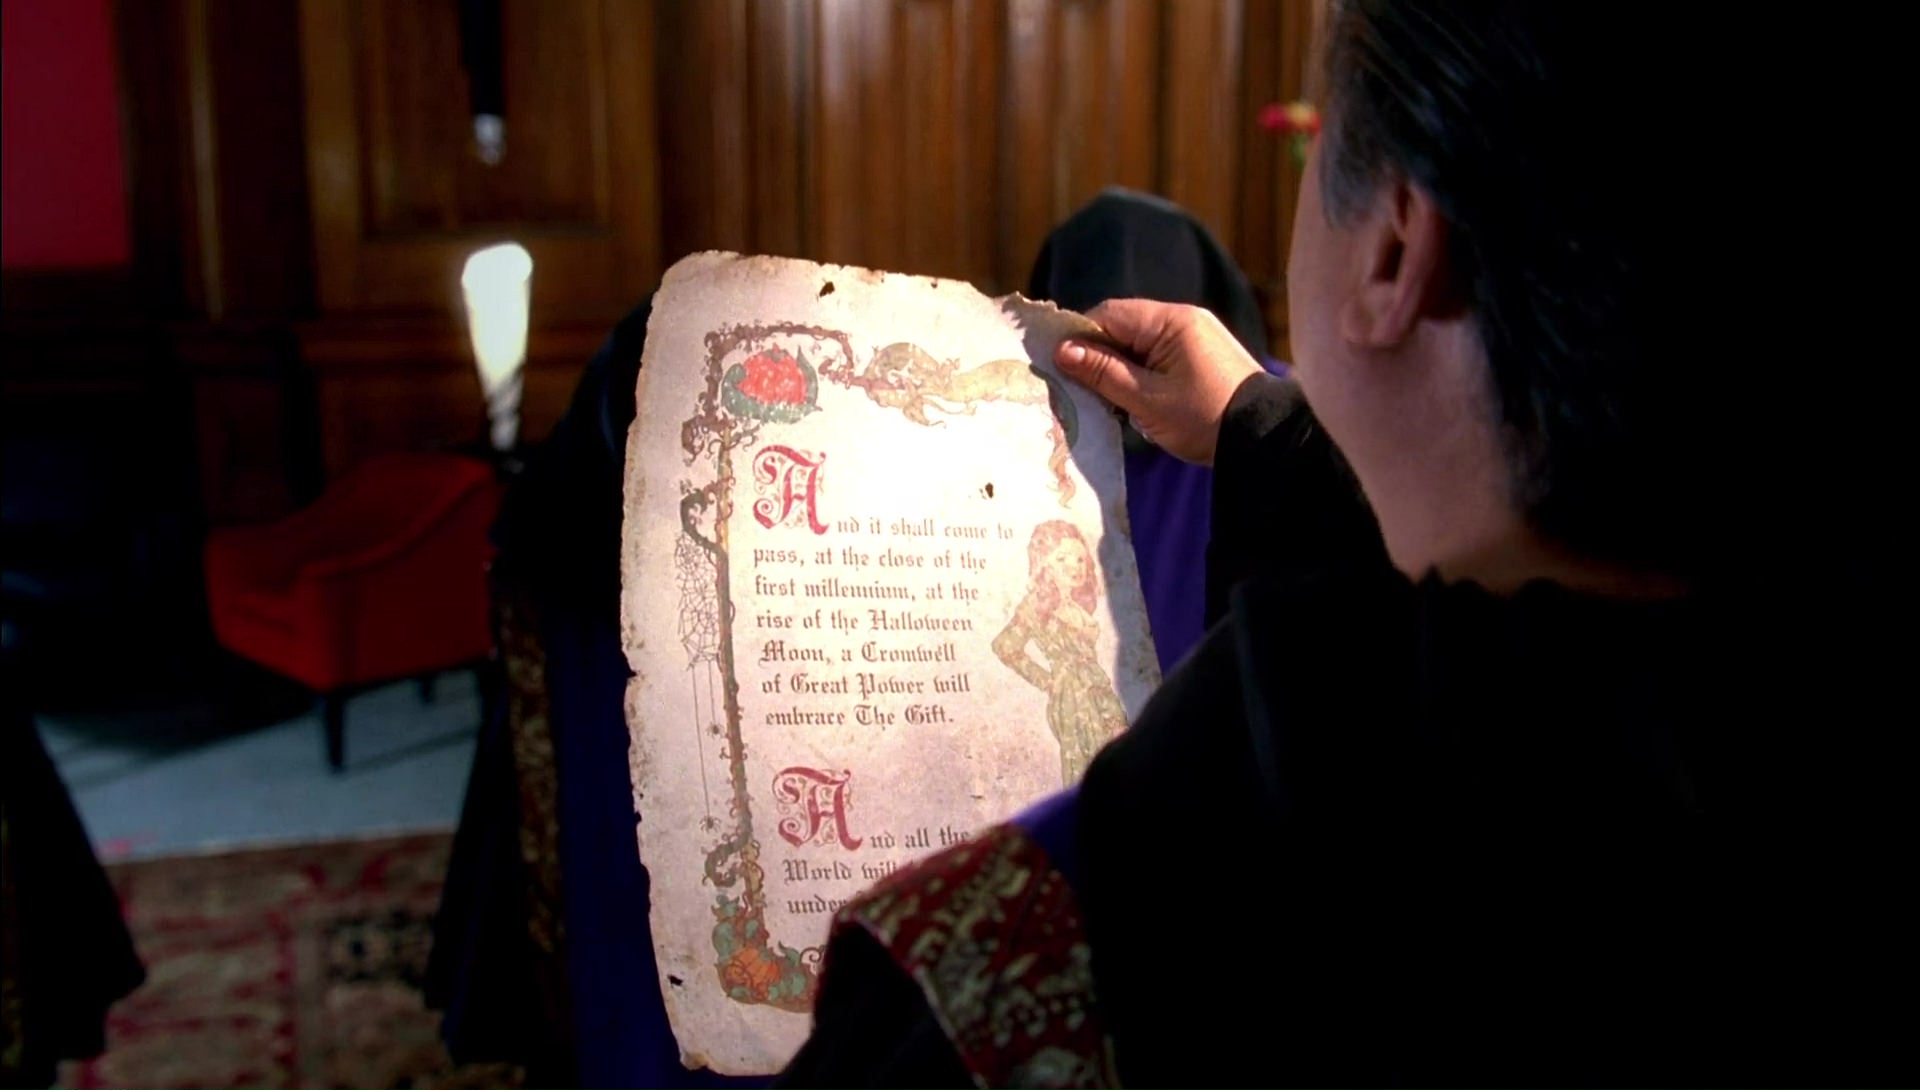 And it shall come to
pass, at the close of the
first millennium, at the
rise of the Halloween
Moon, a Cromwell
of Great Power will
embrace The Gift.
And all the
World will
under